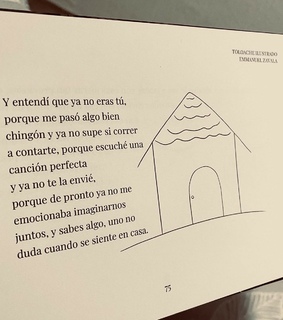 TOLOACHE ILUSTRADO
EMMANUEL ZAVALA
Y entendí que ya no eras tú,
porque me pasó algo bien
chingón y ya no supe si correr
a contarte, porque escuché una
canción perfecta
y ya no te la envié,
porque de pronto ya no me
emocionaba imaginarnos
juntos, y sabes algo, uno no
duda cuando se siente en casa.
75